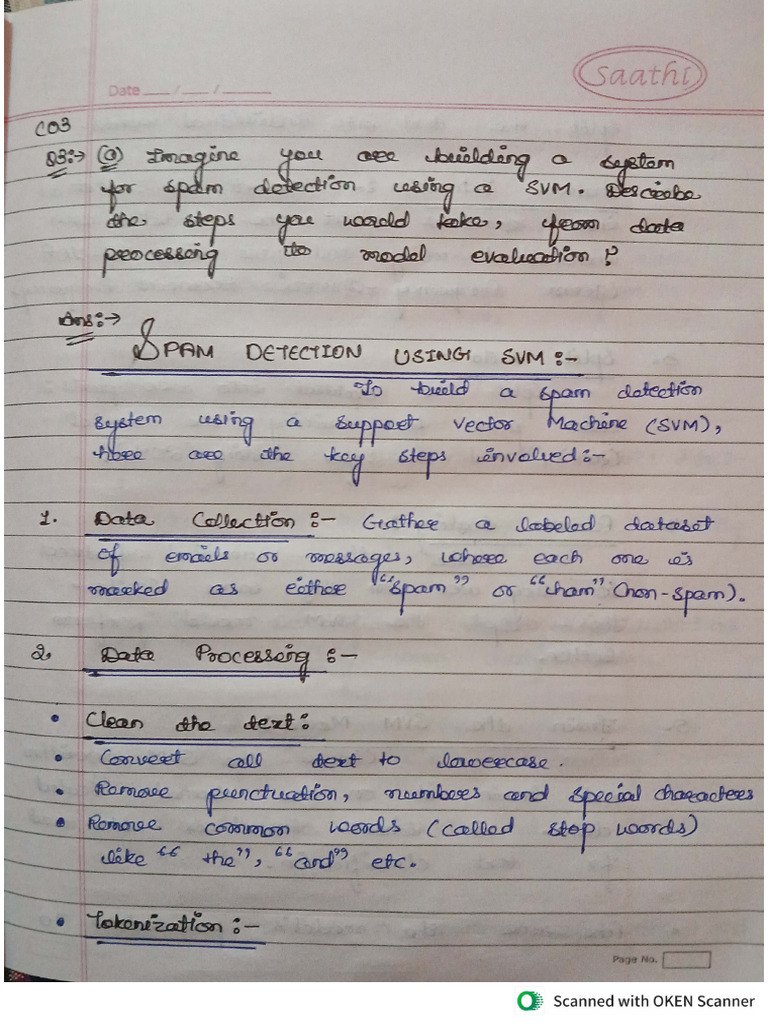 Saathi
Date ___ / ___ / _____
CO3
Q3:→ (a) Imagine you are building a system
for spam detection using a SVM. Describe
the steps you would take, from data
processing to model evaluation?
Ans:→
SPAM DETECTION USING SVM:-
To build a spam detection
system using a Support Vector Machine (SVM),
these are the key steps involved:-
1. Data Collection:- Gather a labeled dataset
of emails or messages, where each one is
marked as either "spam" or "ham" (non-spam).
2. Data Processing:-
• Clean the text:
• Convert all text to lowercase.
• Remove punctuation, numbers and special characters
• Remove common words (called stop words)
like "the", "and" etc.
• Tokenization:-
Page No.
Scanned with OKEN Scanner